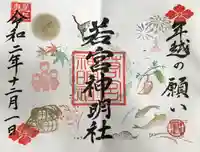 年越の願い
若宮神明社
令和二年十二月一日